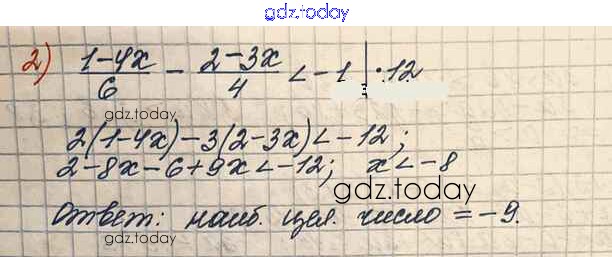 gdz.today
2) (1-4x)/6 - (2-3x)/4 < -1 | · 12
gdz.today
2(1-4x)-3(2-3x)<-12;
2-8x-6+9x<-12; x<-8
gdz.today
Ответ: наиб. цел. число = -9.
gdz.today